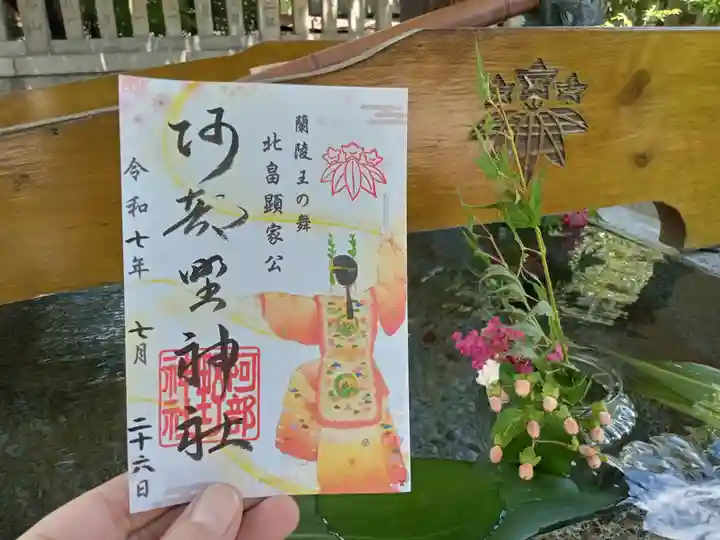 蘭陵王の舞
北畠顕家公
阿部野神社
令和七年 七月 二十六日
阿部野神社